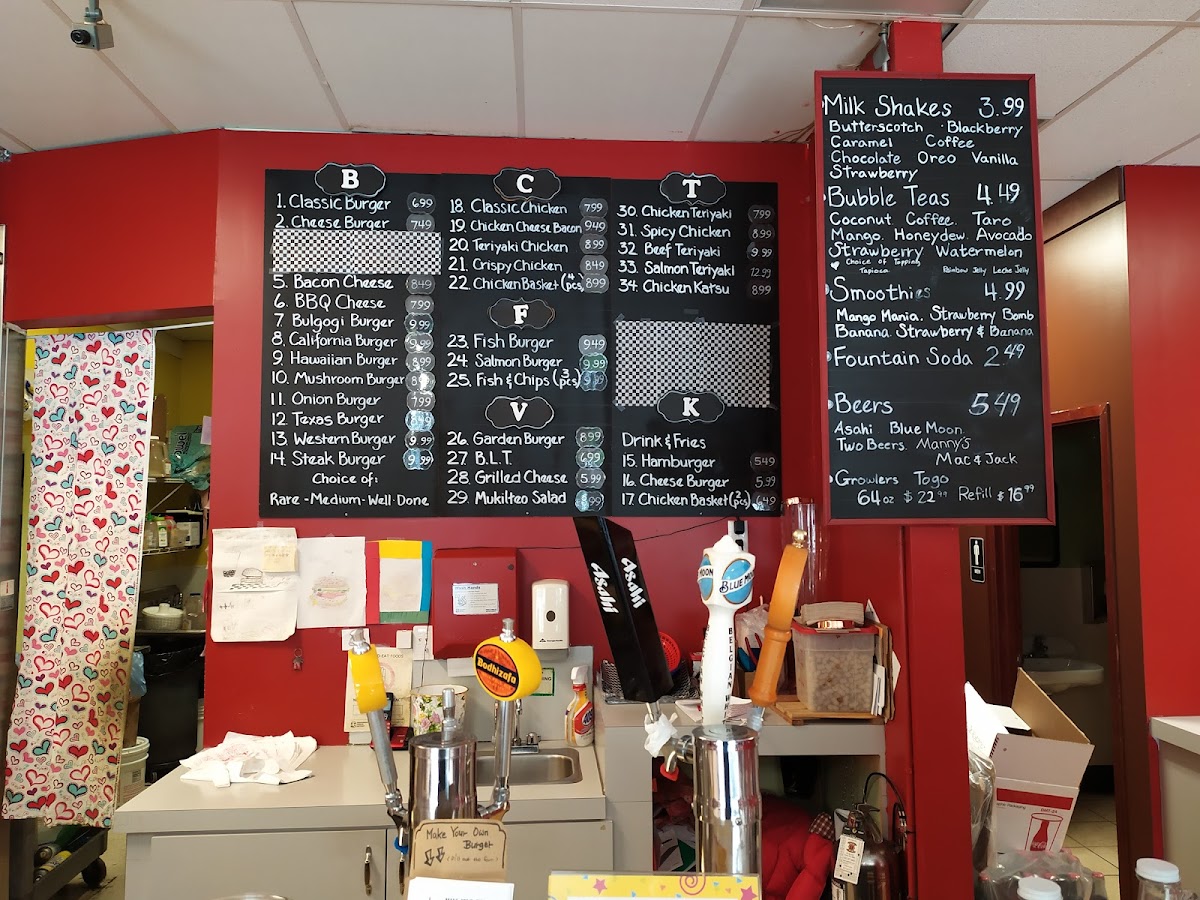 B
1. Classic Burger 6.99
2. Cheese Burger 7.49
5. Bacon Cheese 8.49
6. BBQ Cheese 7.99
7. Bulgogi Burger 9.99
8. California Burger 9.99
9. Hawaiian Burger 8.99
10. Mushroom Burger
11. Onion Burger 7.99
12. Texas Burger 8.49
13. Western Burger 9.99
14. Steak Burger 9.99
Choice of:
Rare - Medium - Well Done
C
18. Classic Chicken 7.99
19. Chicken Cheese Bacon 9.49
20. Teriyaki Chicken 8.99
21. Crispy Chicken 8.49
22. Chicken Basket (4 pcs) 8.99
F
23. Fish Burger 9.49
24. Salmon Burger 9.99
25. Fish & Chips (3 pcs)
V
26. Garden Burger 8.99
27. B.L.T. 6.99
28. Grilled Cheese 5.99
29. Mukilteo Salad 8.99
T
30. Chicken Teriyaki 7.99
31. Spicy Chicken 8.99
32 Beef Teriyaki 9.99
33. Salmon Teriyaki 12.99
34. Chicken Katsu 8.99
K
Drink & Fries
15. Hamburger 5.49
16. Cheese Burger 5.99
17. Chicken Basket (2 pcs) 6.49
Milk Shakes 3.99
Butterscotch Blackberry
Caramel Coffee
Chocolate Oreo Vanilla
Strawberry
Bubble Teas 4.49
Coconut Coffee Taro
Mango. Honeydew. Avocado
Strawberry Watermelon
Choice of Topping
Tapioca Rainbow Jelly Leche Jelly
Smoothies 4.99
Mango Mania. Strawberry Bomb
Banana. Strawberry & Banana
Fountain Soda 2.49
Beers 5.49
Asahi Blue Moon
Two Beers. Manny's
Mac & Jack
Growlers Togo
64 oz $22.99 Refill $16.99
Asahi
Asahi
BLUE MOON
MOON
BELGIAN
Bodhizafa
Make Your Own
Burger